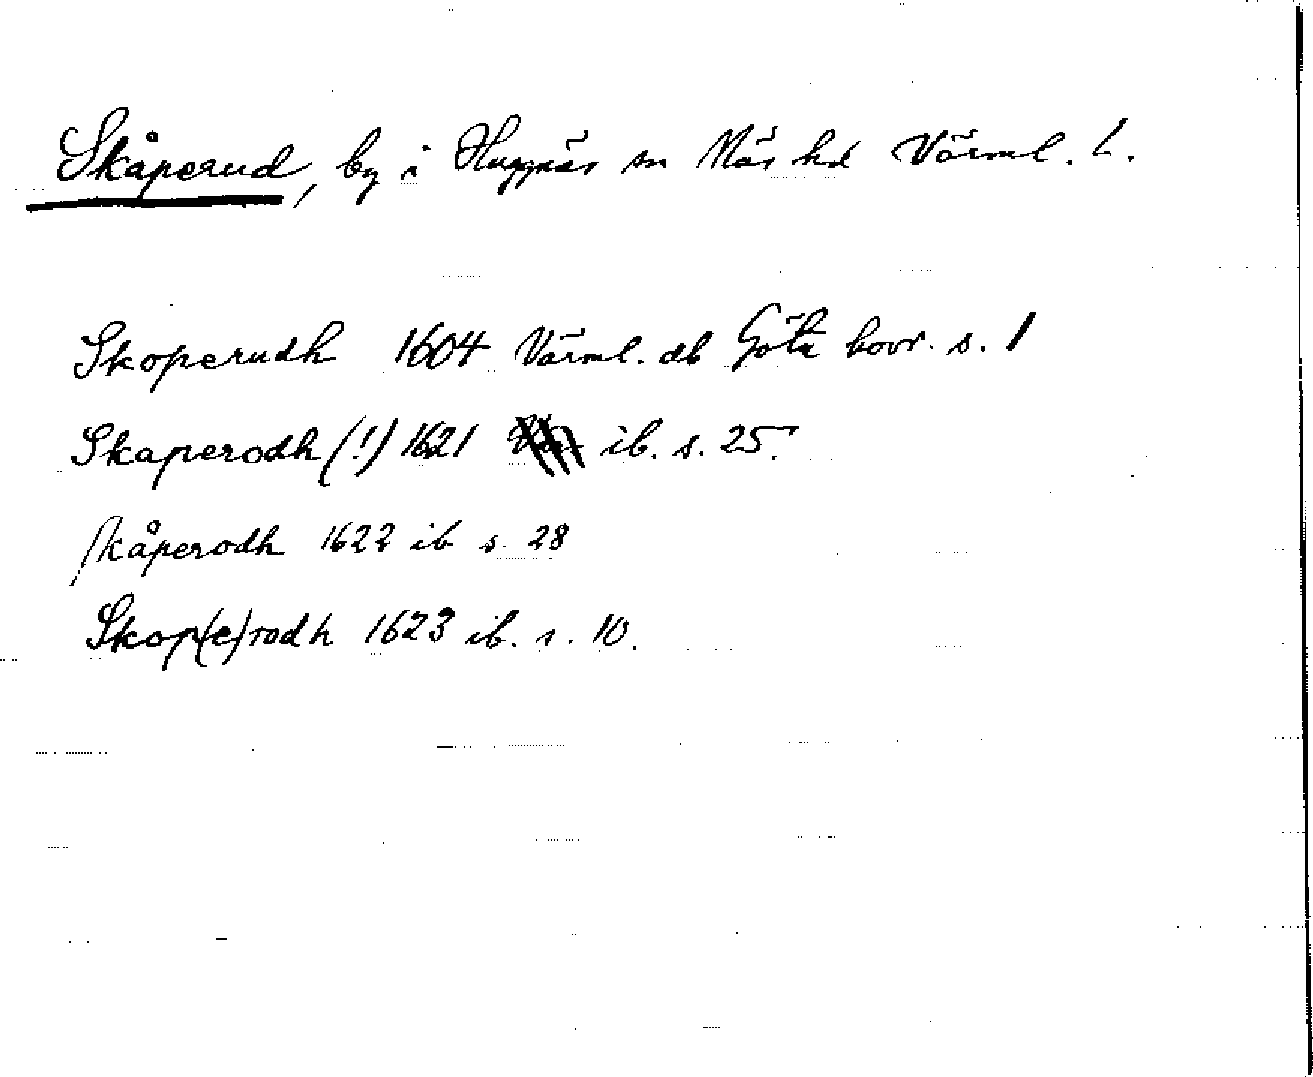 Skåperud, by i Huggnäs sn Näs hd Värml. L.
Skoperudh 1604 Värml. db Göta hovr. s. 1
Skaperodh (!) 1621 ib. s. 25.
Skåperodh 1622 ib s. 28
Skop(e)rodh 1623 ib. s. 10.